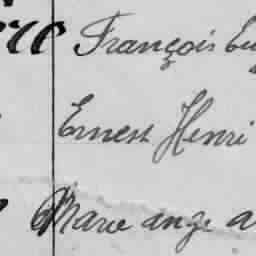 François Eu
Ernest Henri
Marie ange a